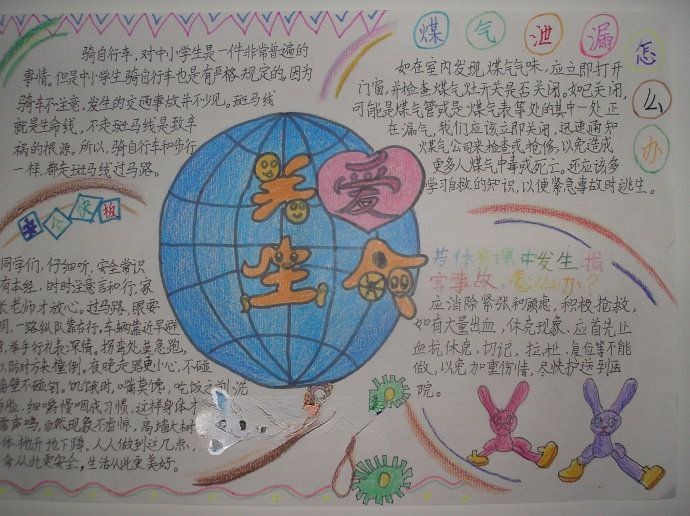 骑自行车,对中小学生是一件非常普遍的
事情。但是中小学生骑自行车也是有严格规定的。因为
骑车不注意,发生的交通事故并不少见。斑马线
就是生命线,不走斑马线是致车
祸的根源。所以,骑自行车和步行
一样,都走斑马线过马路。
安全快板
同学们,仔细听,安全常识
有本经,时时注意言和行,家
长老师才放心。过马路,眼要
明,一路纵队靠右行,车辆靠近早避
举手行礼表深情。拐弯处莫急跑,
以防对方来撞倒,夜晚走路更小心,不碰
墙壁不碰钉。饥饿时,嘴莫馋,吃饭之前洗
细嚼慢咽成习惯,这样身体才
雷声鸣,自然现象不虚惊,高墙大树
体抛开地下蹲。人人做到这几点,
命从此更安全,生活从此更美好。
关爱
生命
煤气泄漏怎么办
如在室内发现煤气气味,应立即打开
门窗,并检查煤气灶开关是否关闭。如已关闭,
可能是煤气管或是煤气表等处的其中一处正
在漏气,我们应该立即关闭,迅速通知
煤气公司来检查或抢修,以免造成
更多人煤气中毒或死亡。还应该多
学习自救的知识,以使紧急事故时逃生。
若体育课中发生损
害事故,怎么办?
应消除紧张和顾虑,积极抢救,
如有大量出血,休克现象,应首先止
血抗休克,切记,拉扯,复位等不能
做,以免加重伤情,尽快护送到医
院。